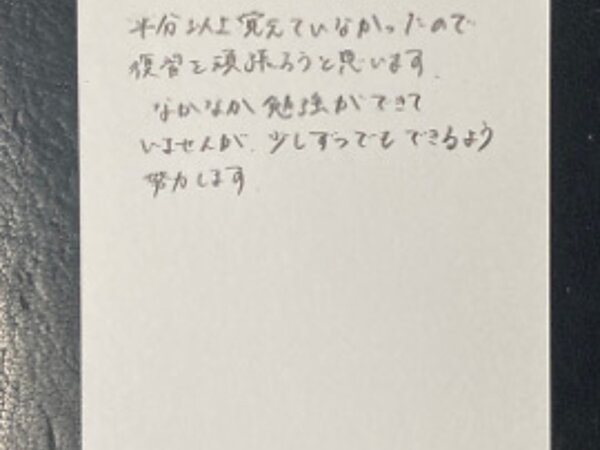 半分以上覚えていなかったので
復習を頑張ろうと思います.
なかなか勉強ができて
いませんが、少しずつでもできるよう
努力します